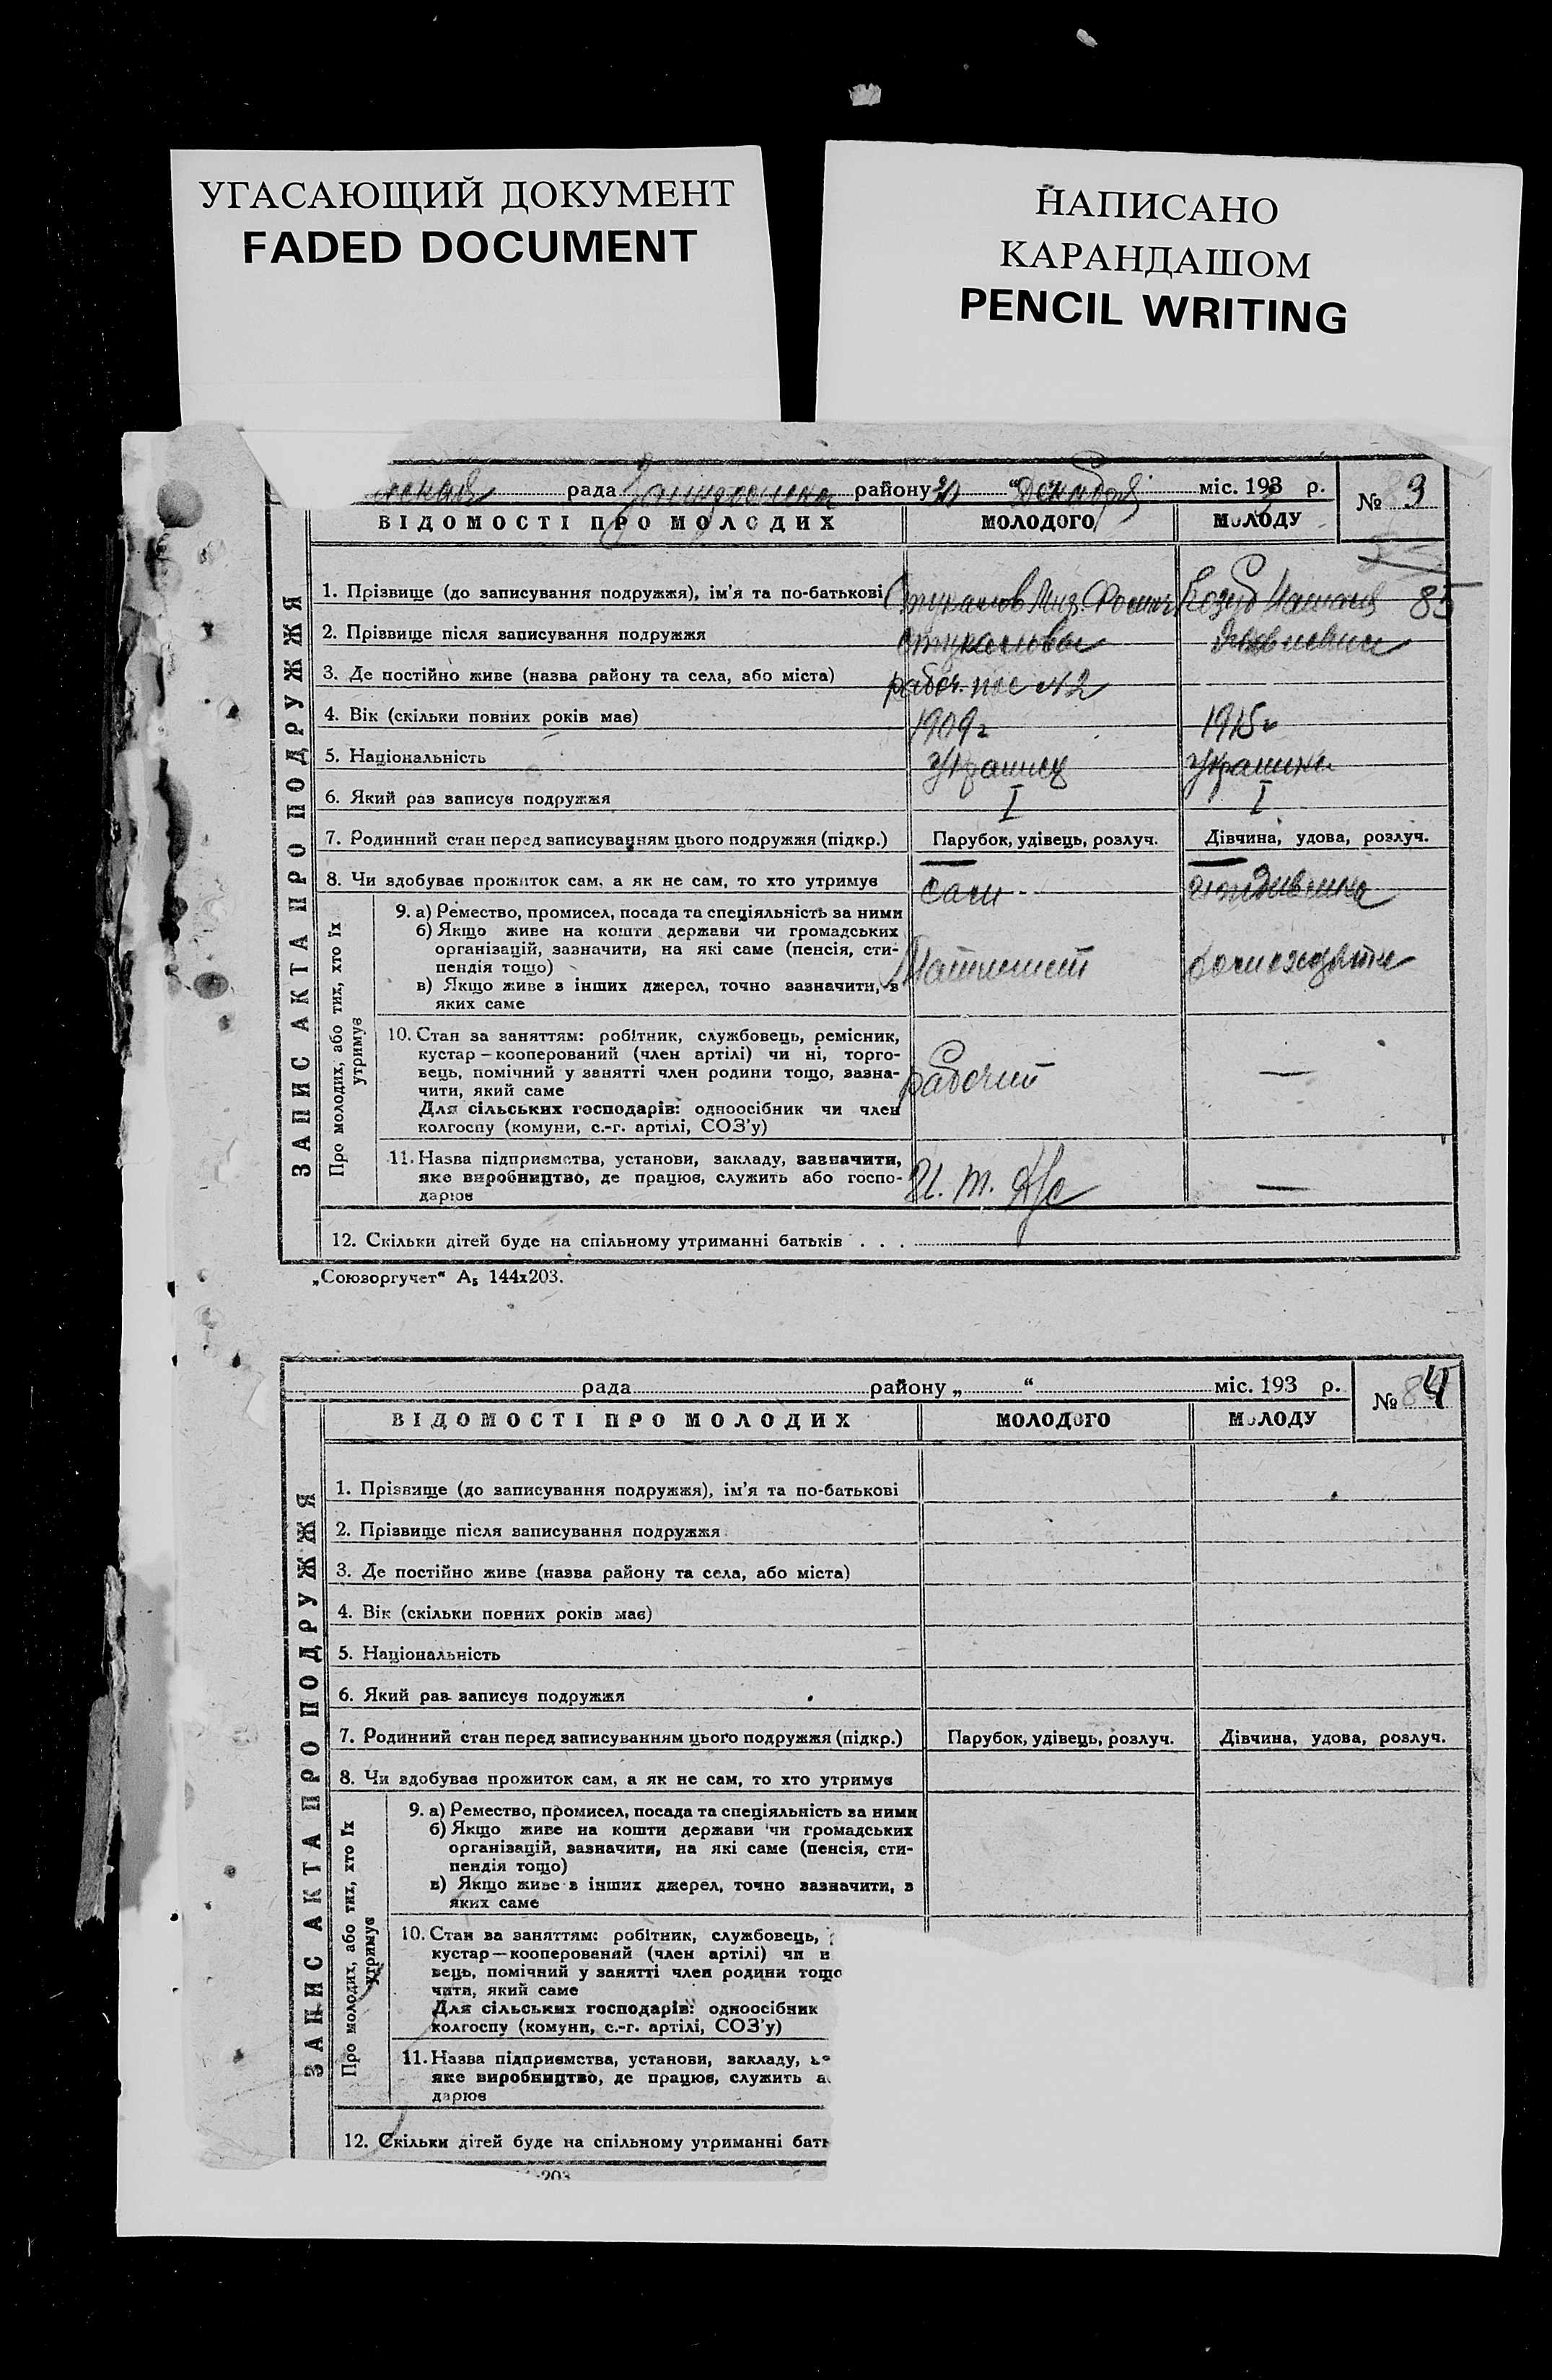 УГАСАЮЩИЙ ДОКУМЕНТ
FADED DOCUMENT
НАПИСАНО
КАРАНДАШОМ
PENCIL WRITING
рада району 21 " Декабря міс. 1933 р. № 83
ВІДОМОСТІ ПРО МОЛОДИХ МОЛОДОГО МОЛОДУ
ЗАПИС АКТА ПРО ПОДРУЖЖЯ
85
1. Прізвище (до записування подружжя), ім'я та по-батькові
2. Прізвище після записування подружжя
3. Де постійно живе (назва району та села, або міста) рабоч. пос №2
4. Вік (скільки повних років має) 1909 г 1915 г
5. Національність Украинец Украинка
6. Який раз записує подружжя I I
7. Родинний стан перед записуванням цього подружжя (підкр.) Парубок, удівець, розлуч. Дівчина, удова, розлуч.
8. Чи здобував прожиток сам, а як не сам, то хто утримує сам иждивенка
Про молодих, або тих, хто їх утримує
9. а) Ремество, промисел, посада та спеціяльність за ними
б) Якщо живе на кошти держави чи громадських
організацій, зазначити, на які саме (пенсія, сти-
пендія тощо) Машинист домохозяйка
в) Якщо живе з інших джерел, точно зазначити, з
яких саме
10. Стан за заняттям: робітник, службовець, ремісник,
кустар – кооперований (член артілі) чи ні, торго-
вець, помічний у занятті член родини тощо, зазна-
чити, який саме рабочий —
Для сільських господарів: одноосібник чи член
колгоспу (комуни, с.-г. артілі, СОЗ'у)
11. Назва підприємства, установи, закладу, зазначити,
яке виробництво, де працює, служить або госпо- —
дарює
12. Скільки дітей буде на спільному утриманні батьків . . .
„Союзоргучет" А5 144х203.
рада району „ " міс. 193 р. № 84
ВІДОМОСТІ ПРО МОЛОДИХ МОЛОДОГО МОЛОДУ
ЗАПИС АКТА ПРО ПОДРУЖЖЯ
1. Прізвище (до записування подружжя), ім'я та по-батькові
2. Прізвище після записування подружжя
3. Де постійно живе (назва району та села, або міста)
4. Вік (скільки повних років має)
5. Національність
6. Який раз записує подружжя
7. Родинний стан перед записуванням цього подружжя (підкр.) Парубок, удівець, розлуч. Дівчина, удова, розлуч.
8. Чи здобував прожиток сам, а як не сам, то хто утримує
Про молодих, або тих, хто їх утримує
9. а) Ремество, промисел, посада та спеціяльність за ними
б) Якщо живе на кошти держави чи громадських
організацій, зазначити, на які саме (пенсія, сти-
пендія тощо)
в) Якщо живе з інших джерел, точно зазначити, з
яких саме
10. Стан за заняттям: робітник, службовець,
кустар — кооперований (член артілі) чи н
вець, помічний у занятті член родини тощо
чити, який саме
Для сільських господарів: одноосібник
колгоспу (комуни, с.-г. артілі, СОЗ'у)
11. Назва підприємства, установи, закладу,
яке виробництво, де працює, служить а
дарює
12. Скільки дітей буде на спільному утриманні бать
203